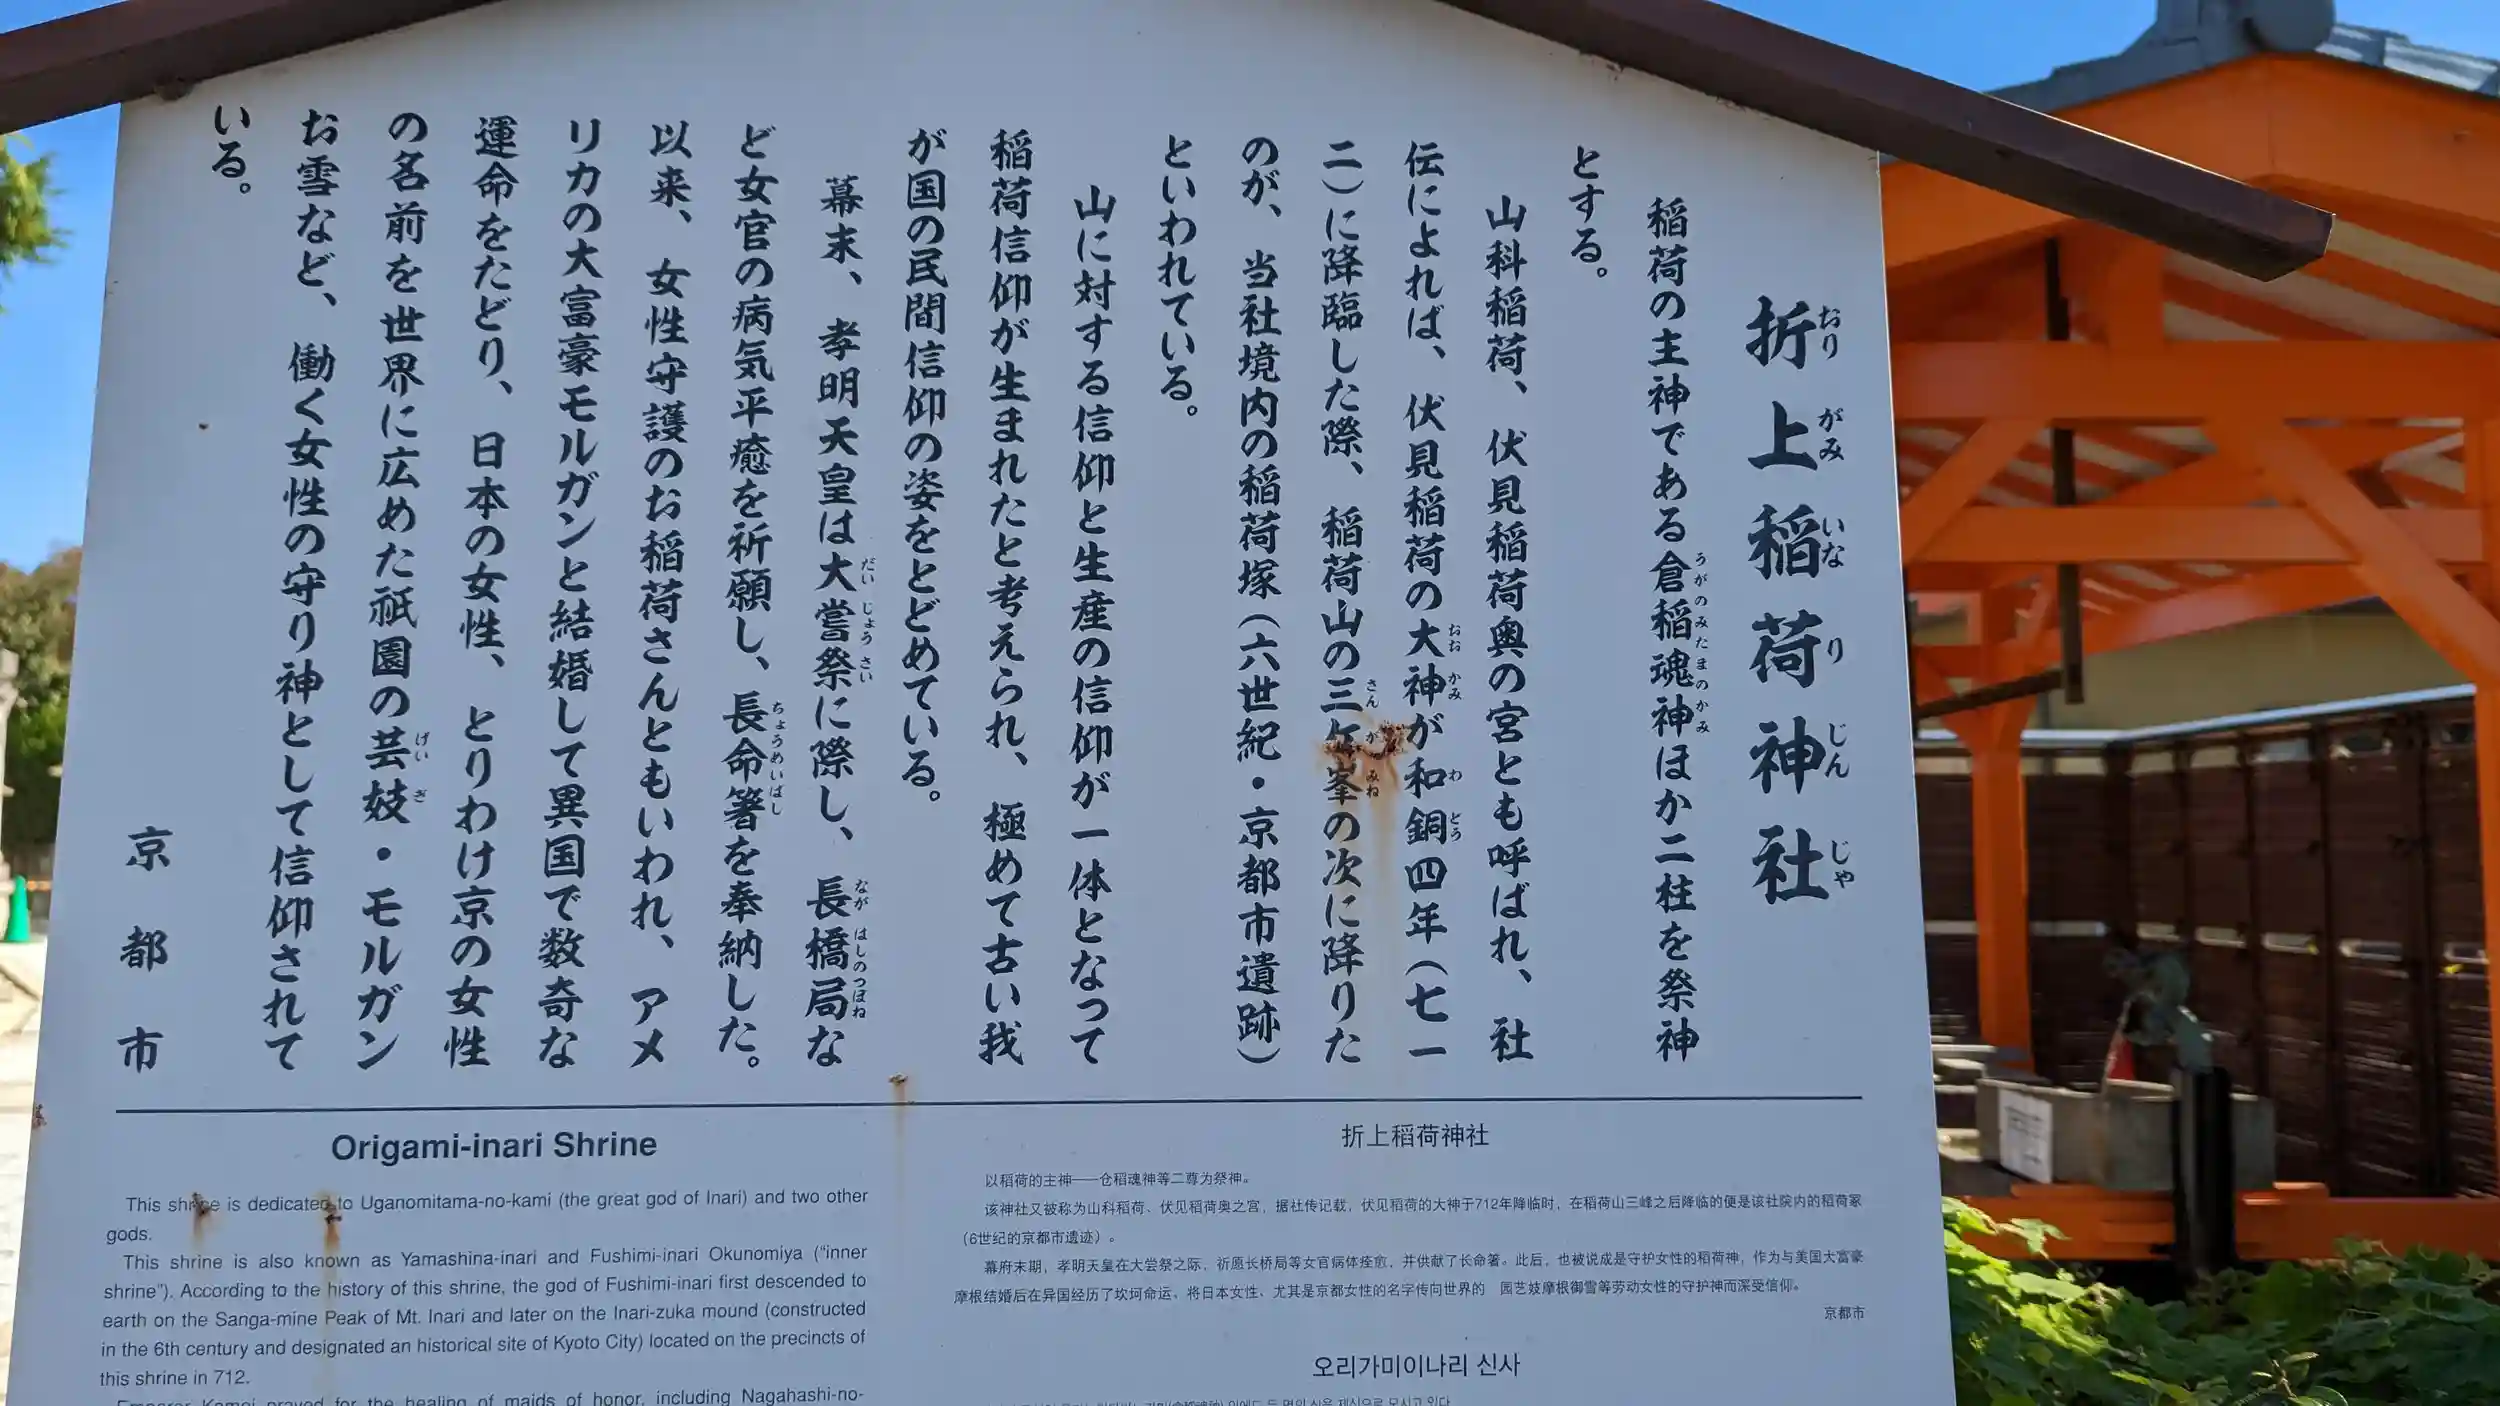 折上稲荷神社
おり がみ いな り じん じゃ
稲荷の主神である倉稲魂神ほか二柱を祭神
うがのみたまのかみ
とする。
山科稲荷、伏見稲荷奥の宮とも呼ばれ、社
伝によれば、伏見稲荷の大神が和銅四年(七一
おお かみ わ どう
二)に降臨した際、稲荷山の三ケ峯の次に降りた
さん が みね
のが、当社境内の稲荷塚(六世紀・京都市遺跡)
といわれている。
山に対する信仰と生産の信仰が一体となって
稲荷信仰が生まれたと考えられ、極めて古い我
が国の民間信仰の姿をとどめている。
幕末、孝明天皇は大嘗祭に際し、長橋局な
だい じょう さい なが はしのつぼね
ど女官の病気平癒を祈願し、長命箸を奉納した。
ちょうめいばし
以来、女性守護のお稲荷さんともいわれ、アメ
リカの大富豪モルガンと結婚して異国で数奇な
運命をたどり、日本の女性、とりわけ京の女性
の名前を世界に広めた祇園の芸妓・モルガン
げい ぎ
お雪など、働く女性の守り神として信仰されて
いる。
京都市
Origami-inari Shrine
This shrine is dedicated to Uganomitama-no-kami (the great god of Inari) and two other
gods.
This shrine is also known as Yamashina-inari and Fushimi-inari Okunomiya ("inner
shrine"). According to the history of this shrine, the god of Fushimi-inari first descended to
earth on the Sanga-mine Peak of Mt. Inari and later on the Inari-zuka mound (constructed
in the 6th century and designated an historical site of Kyoto City) located on the precincts of
this shrine in 712.
Emperor Komei prayed for the healing of maids of honor, including Nagahashi-no-
折上稲荷神社
以稻荷的主神——仓稻魂神等二尊为祭神。
该神社又被称为山科稻荷、伏见稻荷奥之宫，据社传记载，伏见稻荷的大神于712年降临时，在稻荷山三峰之后降临的便是该社院内的稻荷冢
（6世纪的京都市遗迹）。
幕府末期，孝明天皇在大尝祭之际，祈愿长桥局等女官病体痊愈，并供献了长命箸。此后，也被说成是守护女性的稻荷神，作为与美国大富豪
摩根结婚后在异国经历了坎坷命运、将日本女性、尤其是京都女性的名字传向世界的 园艺妓摩根御雪等劳动女性的守护神而深受信仰。
京都市
오리가미이나리 신사